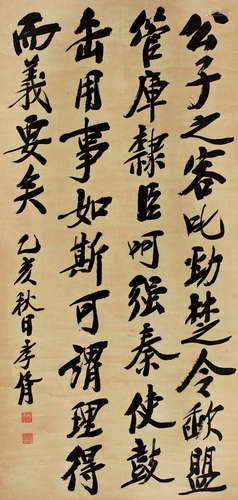 公子之客叱勁楚令歃盟
管庫隸臣呵強秦使鼓
缶用事如斯可謂理得
而義要矣
乙亥秋日孝胥